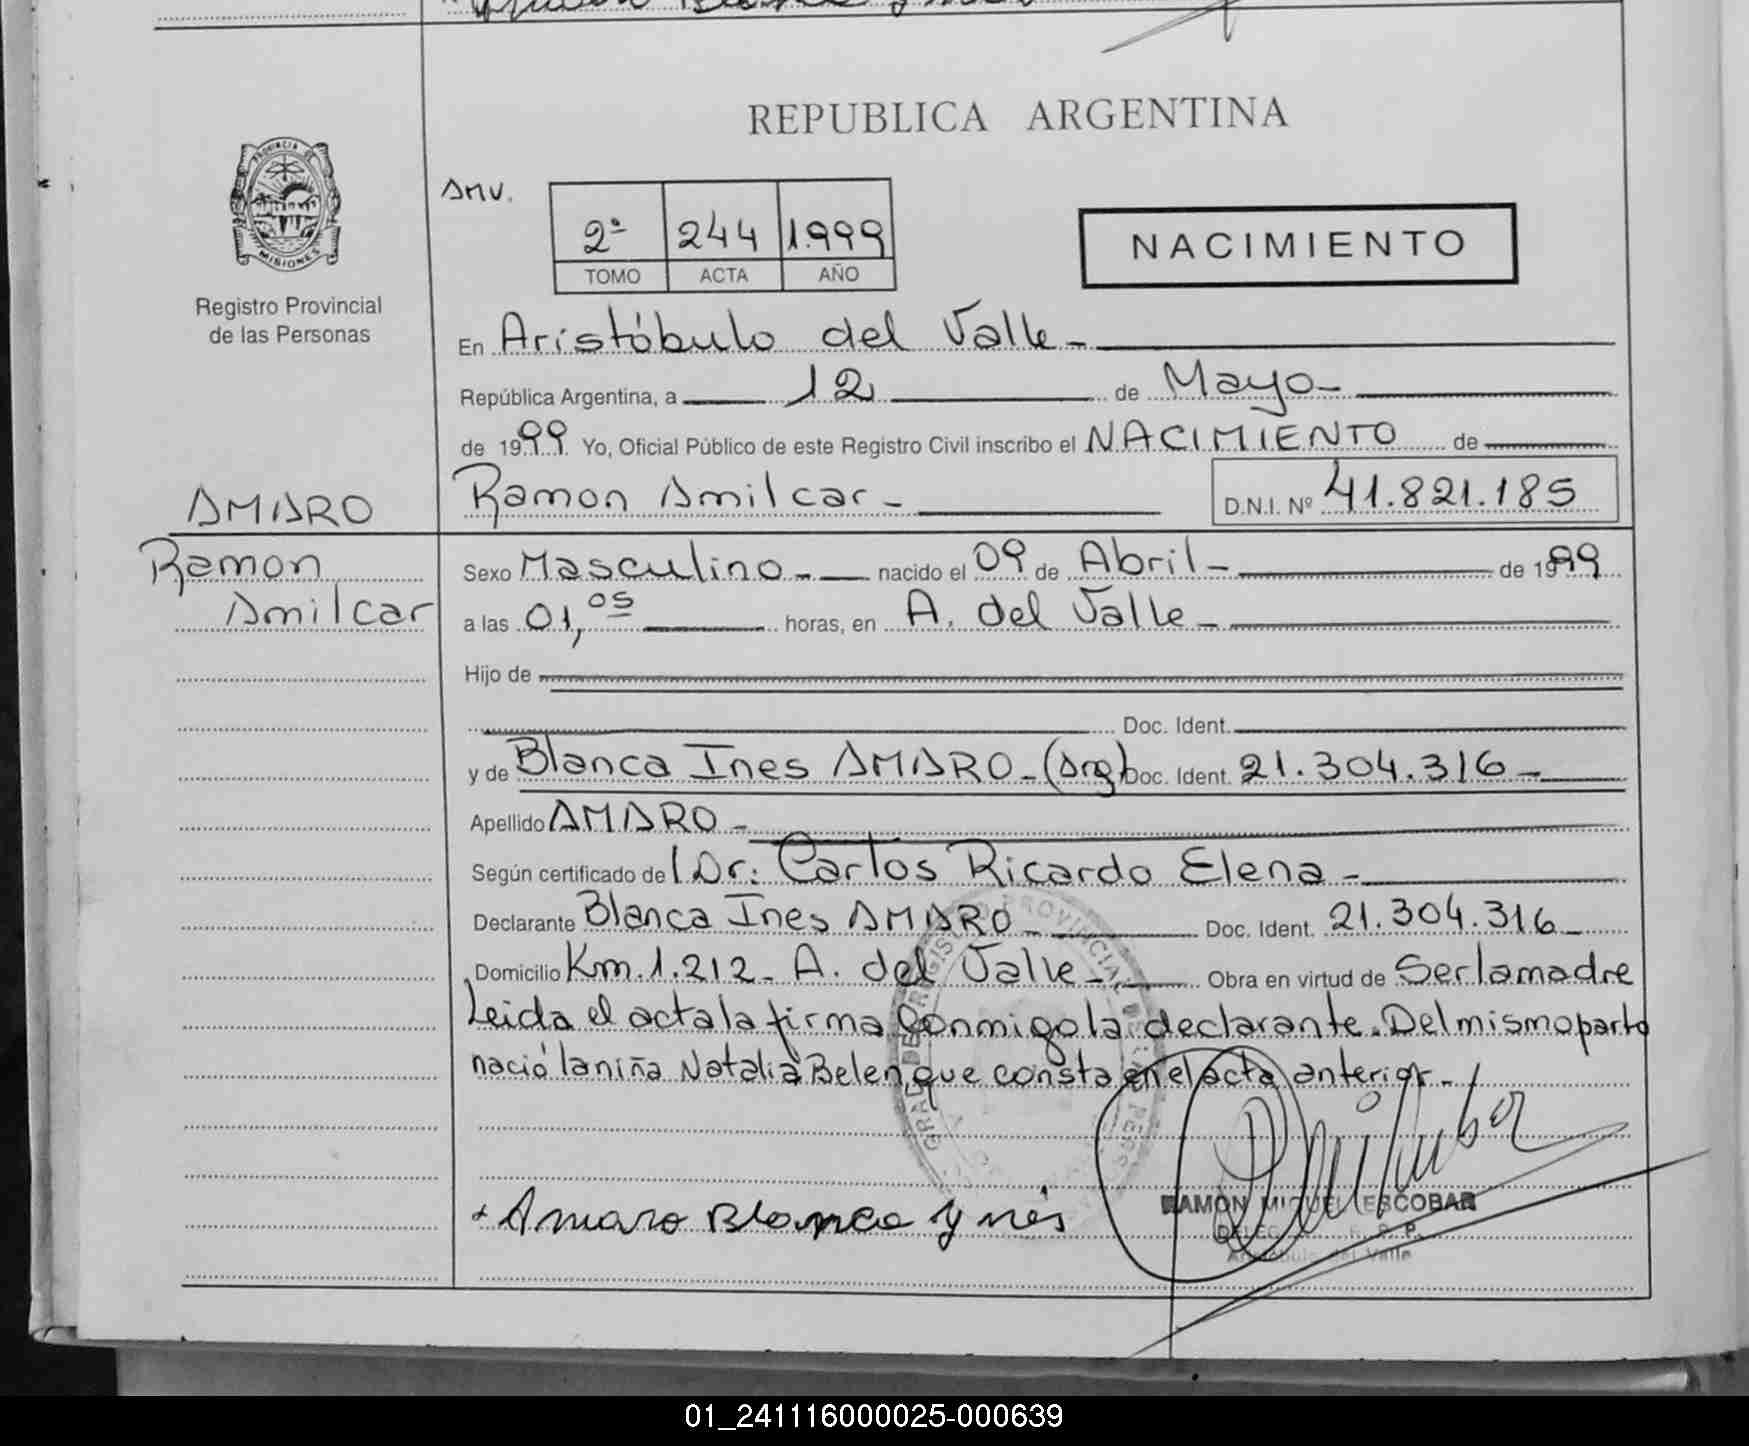 REPUBLICA ARGENTINA
PROVINCIA DE MISIONES
Registro Provincial
de las Personas
AMV.
2º 244 1.999
TOMO ACTA AÑO
NACIMIENTO
En Aristóbulo del Valle -
República Argentina, a 12 de Mayo -
de 1999 Yo, Oficial Público de este Registro Civil inscribo el NACIMIENTO de
Ramon Amilcar - D.N.I. Nº 41.821.185
AMARO
Ramon
Amilcar
Sexo Masculino - nacido el 09 de Abril - de 1999
a las 01,05 horas, en A. del Valle -
Hijo de
Doc. Ident.
y de Blanca Ines AMARO - (Arg) Doc. Ident. 21.304.316 -
Apellido AMARO -
Según certificado del Dr: Carlos Ricardo Elena -
Declarante Blanca Ines AMARO - Doc. Ident. 21.304.316 -
Domicilio Km. 1.212 - A. del Valle - Obra en virtud de Ser la madre
Leida el acta la firma Conmigo la declarante. Del mismo parto
nació la niña Natalia Belen, que consta en el acta anterior -
+ Amaro Blanca Ynés
RAMON MIGUEL ESCOBAR
R. P. P.
Aristóbulo del Valle
01_241116000025-000639